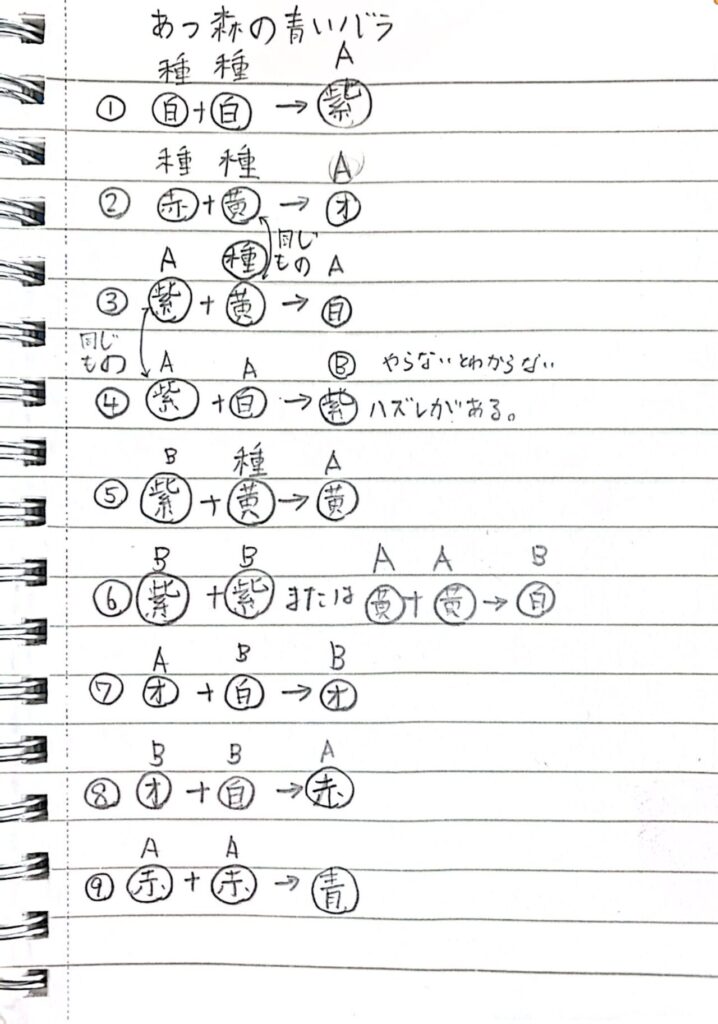 あつ森の青いバラ
種 種 A
① 白+白→紫
種 種 A
② 赤+黄→オ
同じもの
A 種 A
③ 紫+黄→白
同じもの
A A B やらないとわからない
④ 紫+白→紫 ハズレがある。
B 種 A
⑤ 紫+黄→黄
B B A A B
⑥ 紫+紫または黄+黄→白
A B B
⑦ オ+白→オ
B B A
⑧ オ+白→赤
A A
⑨ 赤+赤→青